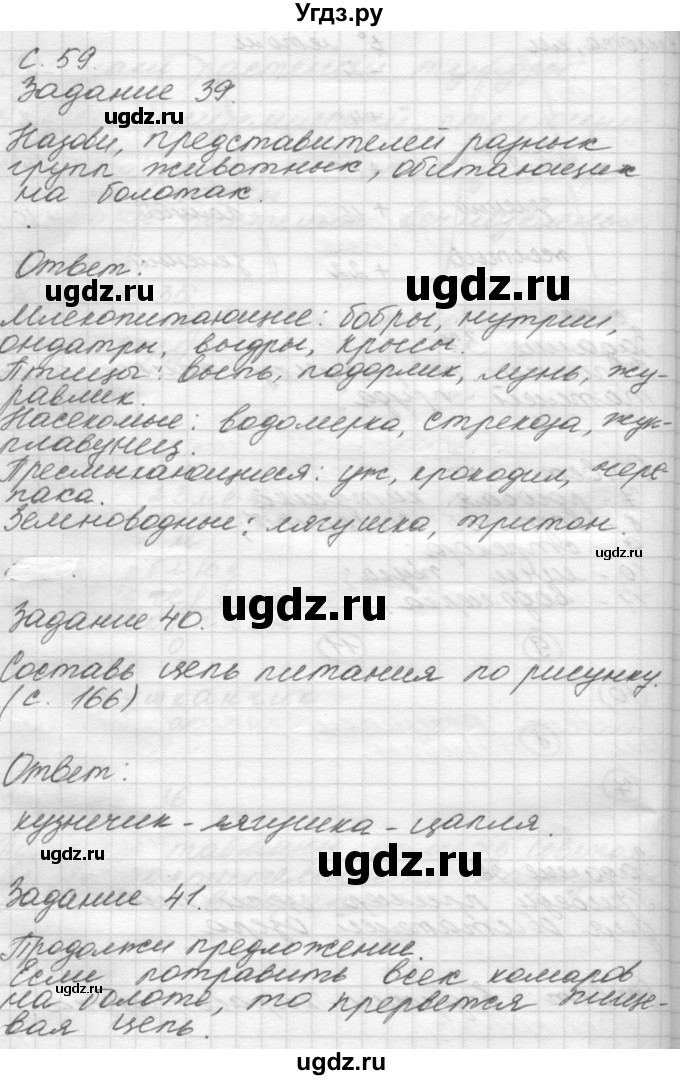 Угдз.ру
с. 59.
Задание 39.
ugdz.ru
ugdz.ru
Назови, представителей разных
групп животных, обитающих
на болотах.
Ответ:
ugdz.ru
ugdz.ru
Млекопитающие: бобры, нутрии,
ондатры, выдры, крысы.
Птицы: выпь, подорлик, лунь, жу-
равлик.
Насекомые: водомерка, стрекоза, жук-
плавунец.
Пресмыкающиеся: уж, крокодил, чере
паха.
Земноводные: лягушка, тритон.
ugdz.ru
ugdz.ru
Задание 40.
Составь цепь питания по рисунку.
(с. 166)
Ответ:
кузнечик - лягушка - цапля.
ugdz.ru
ugdz.ru
Задание 41.
Продолжи предложение.
Если потравить всех комаров
на болоте, то прервется пище-
вая цепь.
ugdz.ru
ugdz.ru